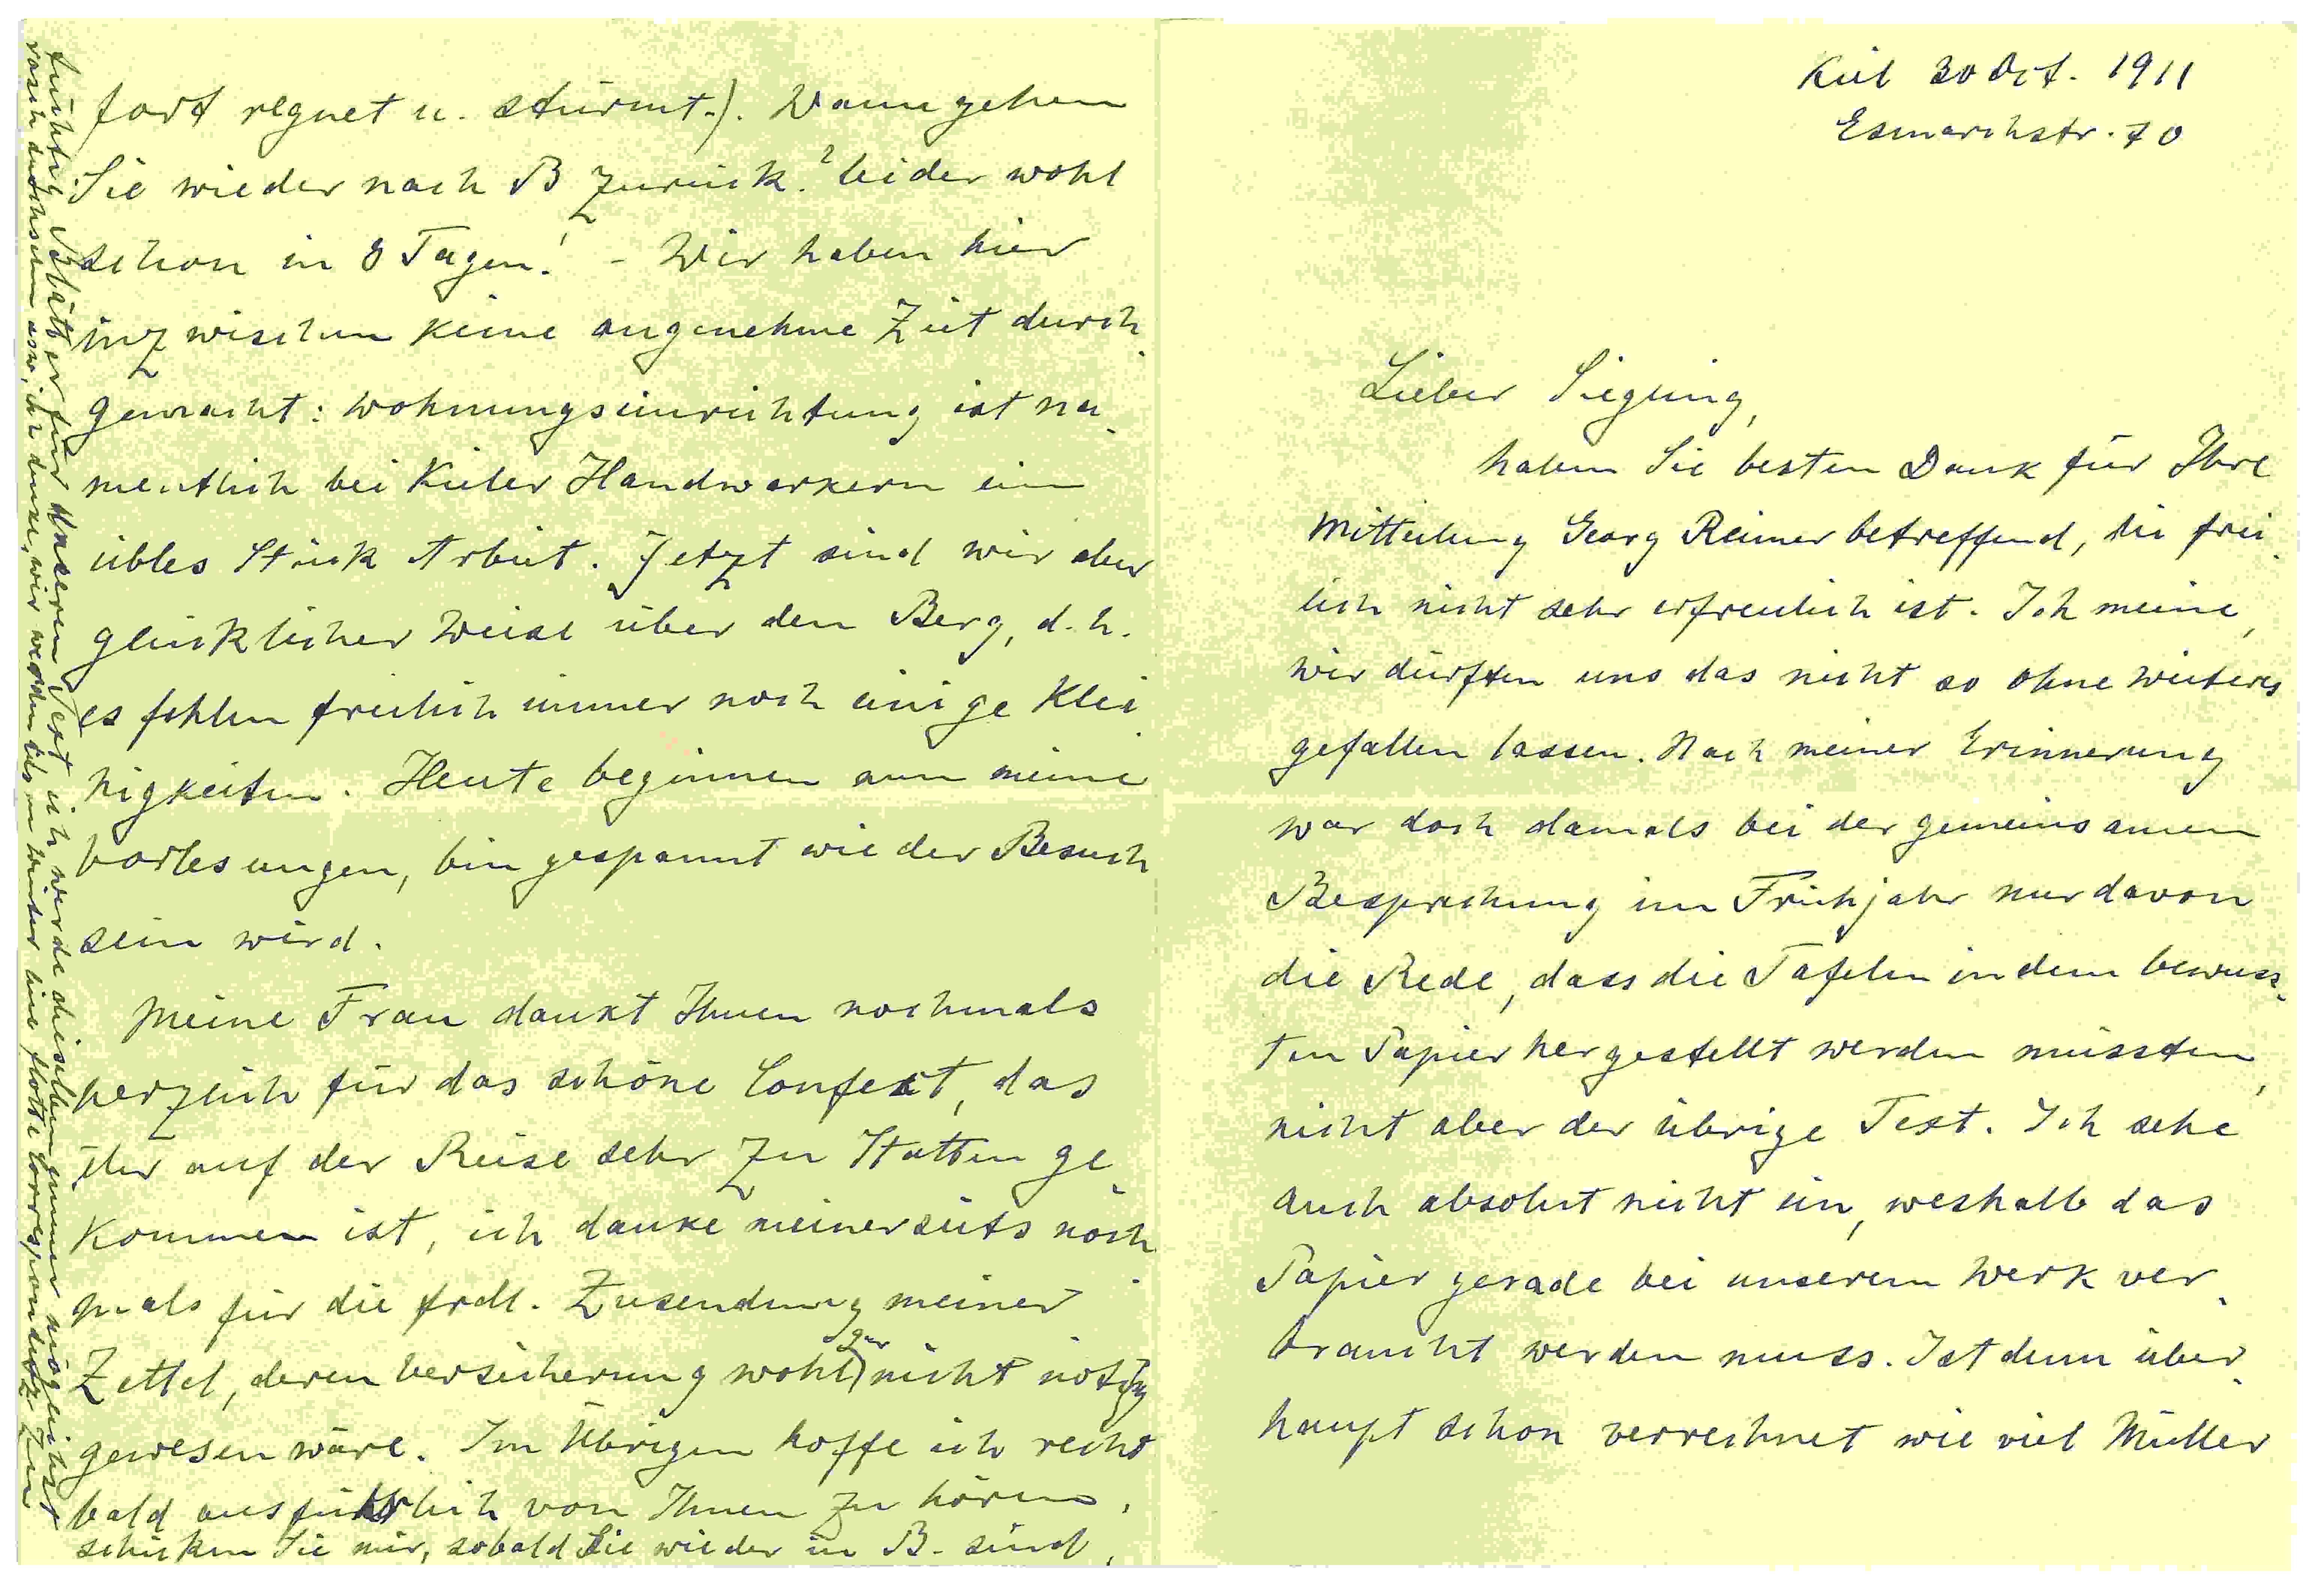 Kiel 30 Oct. 1911
Esmarchstr. 70
Lieber Siegling,
haben Sie besten Dank für Ihre
Mitteilung Georg Reimer betreffend, die frei-
lich nicht sehr erfreulich ist. Ich meine,
wir dürften uns das nicht so ohne weiteres
gefallen lassen. Nach meiner Erinnerung
war doch damals bei der gemeinsamen
Besprechung im Frühjahr nur davon
die Rede, dass die Tafeln in dem bewuss-
ten Papier hergestellt werden müssten,
nicht aber der übrige Text. Ich sehe
auch absolut nicht ein, weshalb das
Papier gerade bei unserem Werk ver-
braucht werden muss. Ist denn über-
haupt schon verrechnet wie viel Müller
fort regnet u. stürmt.). Wann gehen
Sie wieder nach B zurück? Leider wohl
schon in 8 Tagen! - Wir haben hier
inzwischen keine angenehme Zeit durch-
gemacht: Wohnungseinrichtung ist na-
mentlich bei Kieler Handwerkern ein
übles Stück Arbeit. Jetzt sind wir aber
glücklicher Weise über den Berg, d. h.
es fehlen freilich immer noch einige Klei-
nigkeiten. Heute beginnen nun meine
Vorlesungen, bin gespannt wie der Besuch
sein wird.
Meine Frau dankt Ihnen nochmals
herzlich für das schöne Confect, das
ihr auf der Reise sehr zu Statten ge-
kommen ist, ich danke meinerseits noch-
mals für die frdl. Zusendung meiner
Zettel, deren Versicherung wohl gar nicht nötig
gewesen wäre. Im Übrigen hoffe ich recht
bald ausführlich von Ihnen zu hören,
schicken Sie mir, sobald Sie wieder in B. sind,
tüchtig Blätter für unseren Text ich werde dieselben immer möglichst
rasch durchsehen usw., ich denke, wir werden uns im Winter eine flotte Correspondenz zum